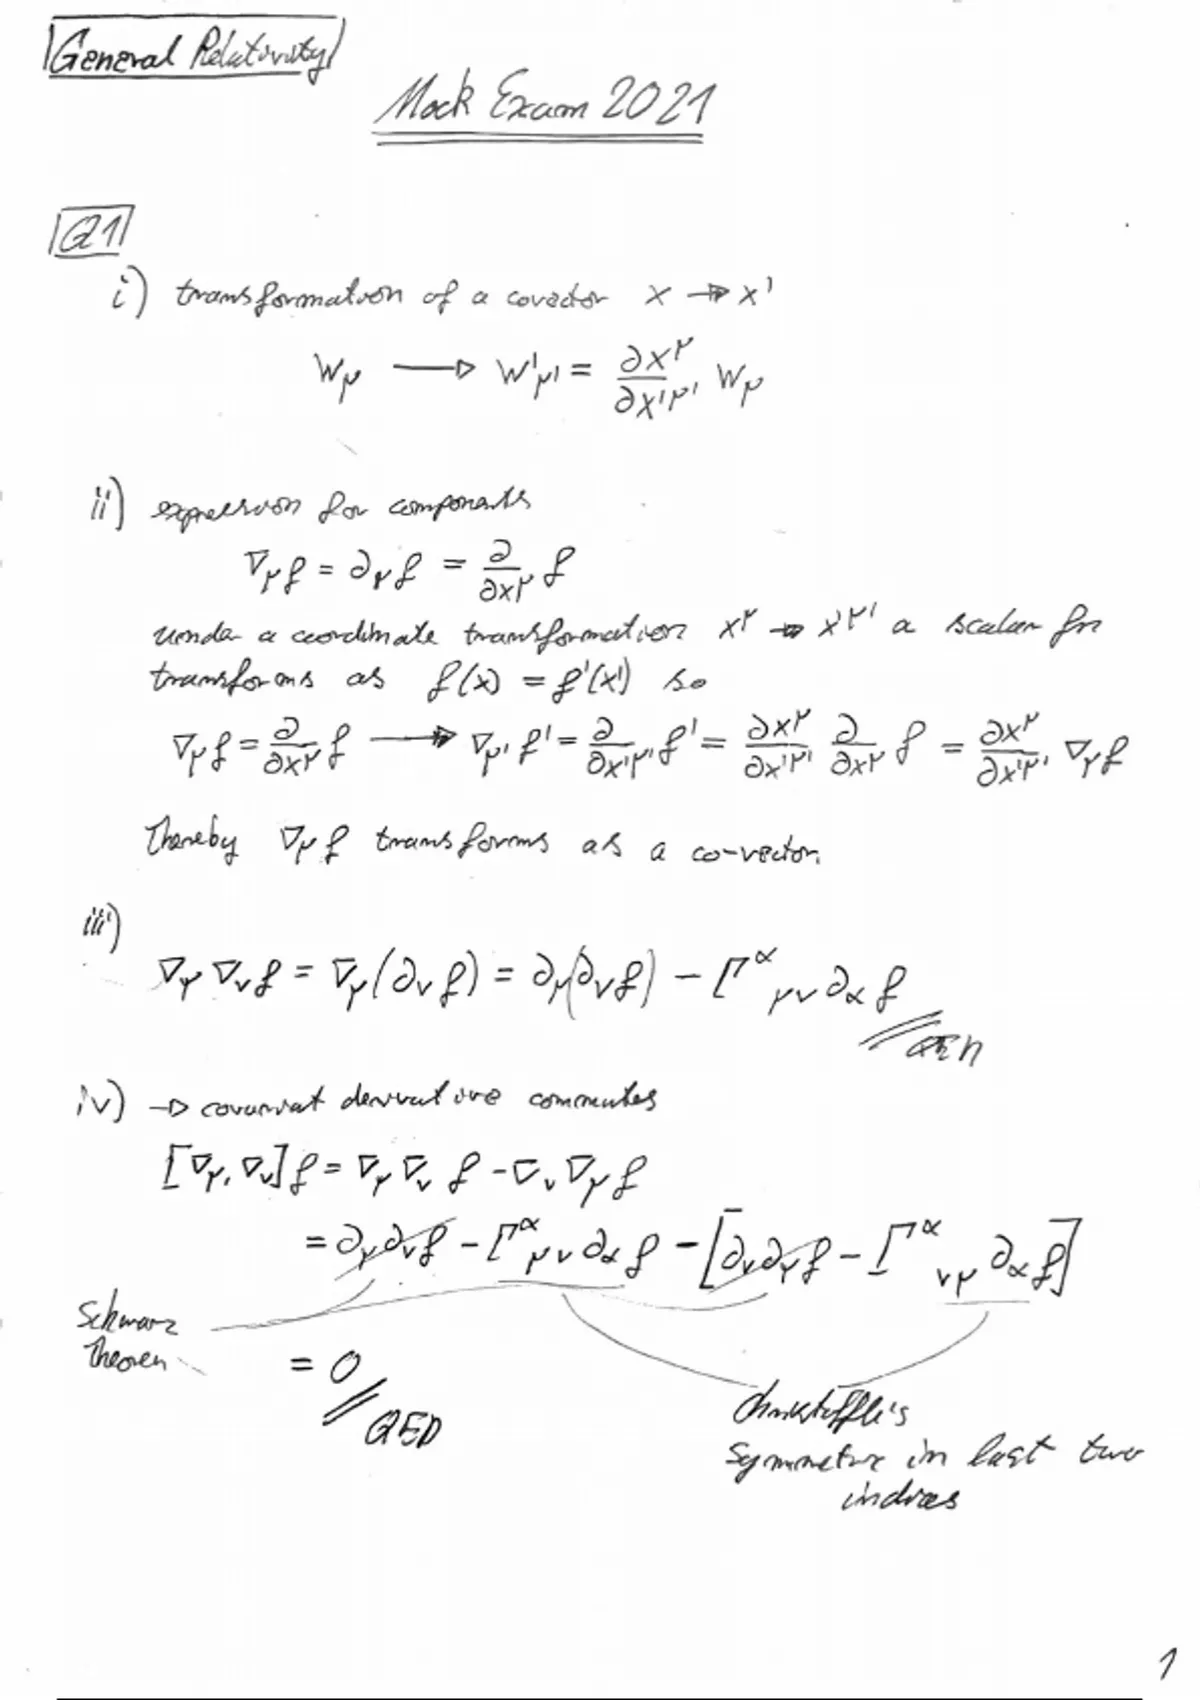 General Relativity
Mock Exam 2021
Q1
i) transformation of a covector x → x'
W_μ → W'_μ' = ∂x^μ/∂x'^μ' W_μ
ii) expression for components
∇_μ f = ∂_μ f = ∂/∂x^μ f
under a coordinate transformation x^μ → x'^μ' a scalar fn
transforms as f(x) = f'(x') so
∇_μ f = ∂/∂x^μ f → ∇_μ' f' = ∂/∂x'^μ' f' = ∂x^μ/∂x'^μ' ∂/∂x^μ f = ∂x^μ/∂x'^μ' ∇_μ f
Thereby ∇_μ f transforms as a co-vector.
iii)
∇_μ ∇_ν f = ∇_μ(∂_ν f) = ∂_μ(∂_ν f) - Γ^α_μν ∂_α f
QED
iv) → covariat derivative commutes
[∇_μ, ∇_ν] f = ∇_μ ∇_ν f - ∇_ν ∇_μ f
= ∂_μ ∂_ν f - Γ^α_μν ∂_α f - [∂_ν ∂_μ f - Γ^α_νμ ∂_α f]
Schwarz
Theorem
= 0
QED
Christoffle's
symmetric in last two
indices
1